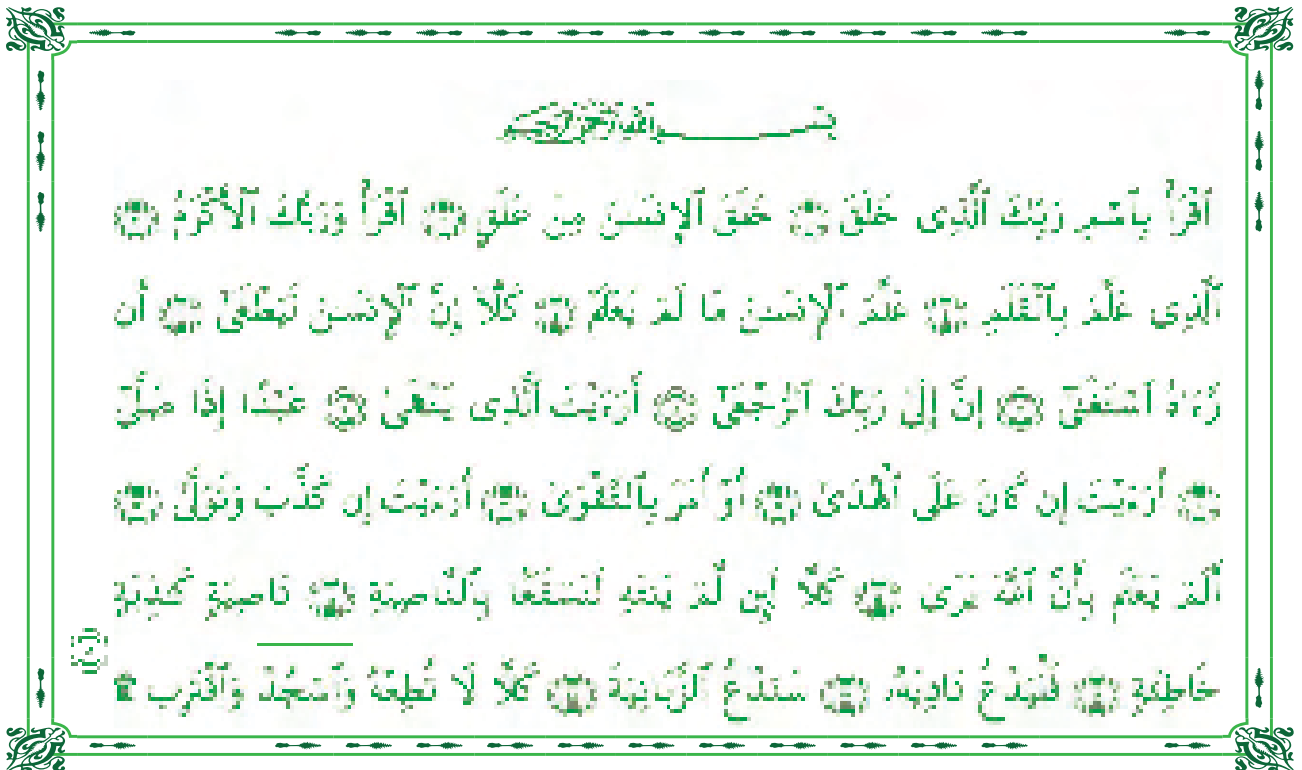 بِسْمِ ٱللَّهِ ٱلرَّحْمَٰنِ ٱلرَّحِيمِ
ٱقْرَأْ بِٱسْمِ رَبِّكَ ٱلَّذِى خَلَقَ ١ خَلَقَ ٱلْإِنسَٰنَ مِنْ عَلَقٍ ٢ ٱقْرَأْ وَرَبُّكَ ٱلْأَكْرَمُ ٣
ٱلَّذِى عَلَّمَ بِٱلْقَلَمِ ٤ عَلَّمَ ٱلْإِنسَٰنَ مَا لَمْ يَعْلَمْ ٥ كَلَّآ إِنَّ ٱلْإِنسَٰنَ لَيَطْغَىٰٓ ٦ أَن
رَّءَاهُ ٱسْتَغْنَىٰٓ ٧ إِنَّ إِلَىٰ رَبِّكَ ٱلرُّجْعَىٰٓ ٨ أَرَءَيْتَ ٱلَّذِى يَنْهَىٰ ٩ عَبْدًا إِذَا صَلَّىٰٓ
١٠ أَرَءَيْتَ إِن كَانَ عَلَى ٱلْهُدَىٰٓ ١١ أَوْ أَمَرَ بِٱلتَّقْوَىٰٓ ١٢ أَرَءَيْتَ إِن كَذَّبَ وَتَوَلَّىٰٓ ١٣
أَلَمْ يَعْلَم بِأَنَّ ٱللَّهَ يَرَىٰ ١٤ كَلَّا لَئِن لَّمْ يَنتَهِ لَنَسْفَعًۢا بِٱلنَّاصِيَةِ ١٥ نَاصِيَةٍ كَٰذِبَةٍ
خَاطِئَةٍ ١٦ فَلْيَدْعُ نَادِيَهُۥ ١٧ سَنَدْعُ ٱلزَّبَانِيَةَ ١٨ كَلَّا لَا تُطِعْهُ وَٱسْجُدْ وَٱقْتَرِب ۩